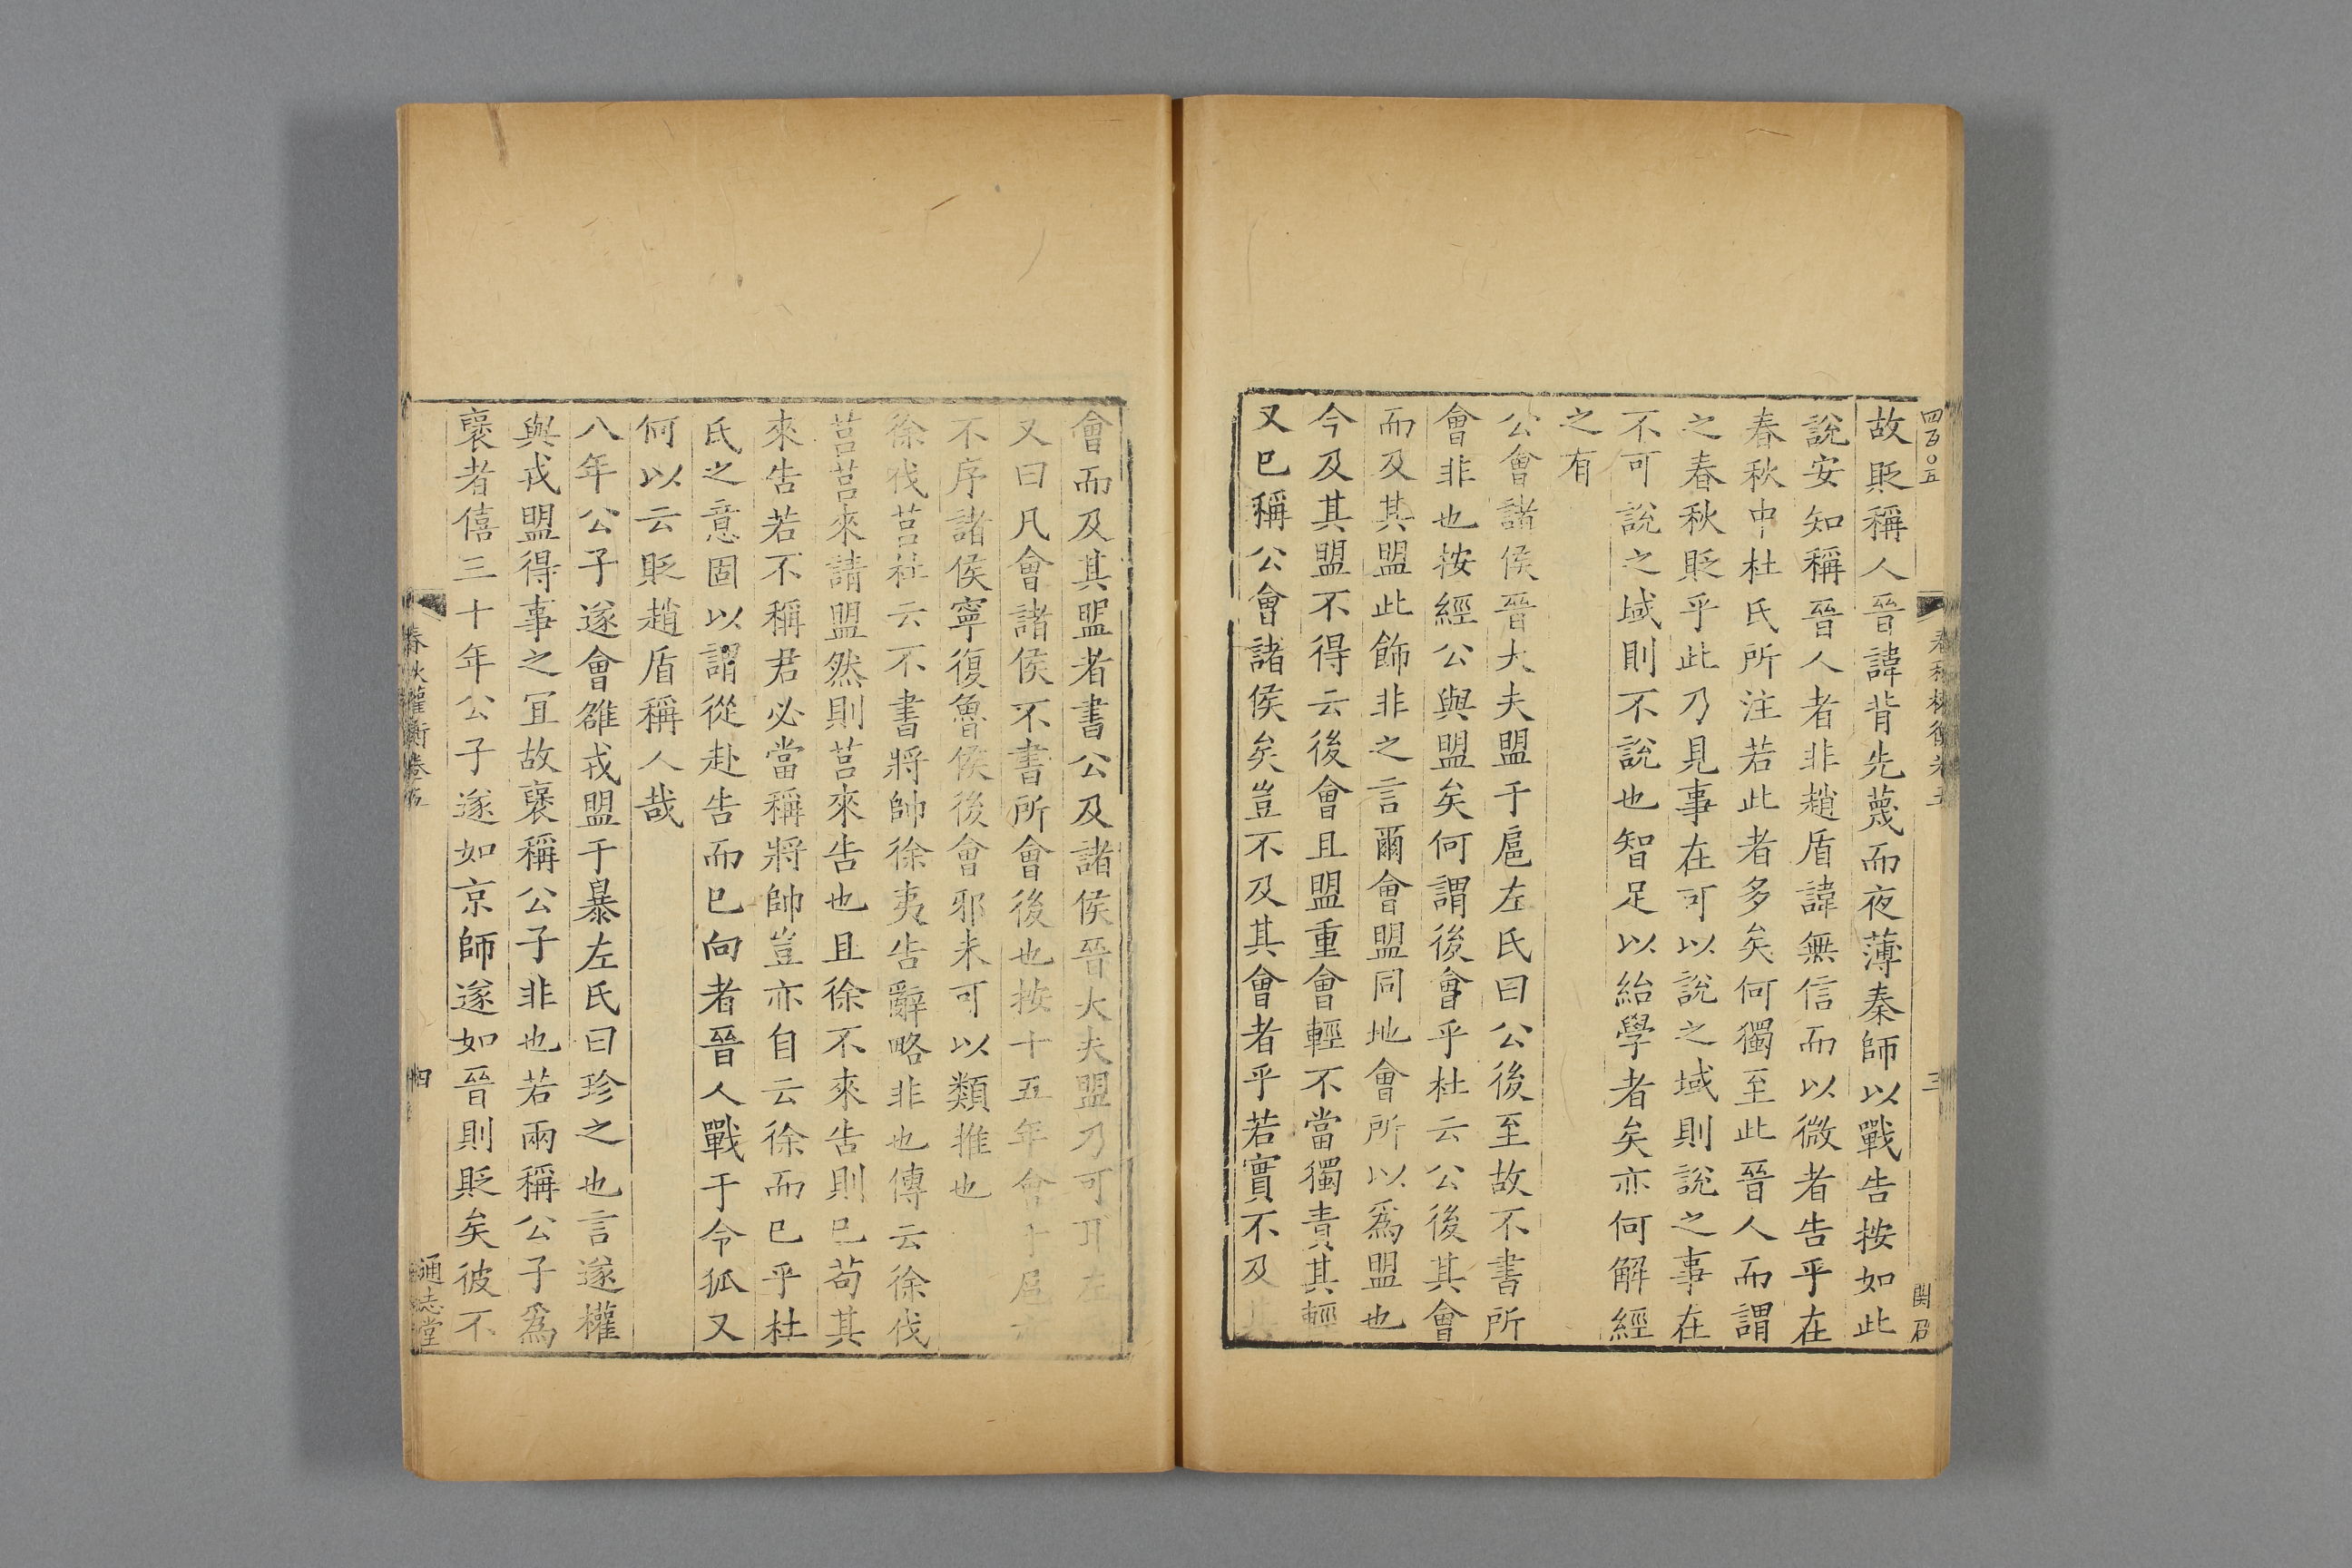 四百〇五
三
関召
故貶稱人晉諱背先蔑而夜薄秦師以戰告按如此
說安知稱晉人者非趙盾諱無信而以微者告乎在
春秋中杜氏所注若此者多矣何獨至此晉人而謂
之春秋貶乎此乃見事在可以說之域則說之事在
不可說之域則不說也智足以紿學者矣亦何解經
之有
公會諸侯晉大夫盟于扈左氏曰公後至故不書所
會非也按經公與盟矣何謂後會乎杜云公後其會
而及其盟此飾非之言爾會盟同地會所以爲盟也
今及其盟不得云後會且盟重會輕不當獨責其輕
又巳稱公會諸侯矣豈不及其會者乎若實不及其
會而及其盟者書公及諸侯晉大夫盟乃可耳左
又曰凡會諸侯不書所會後也按十五年會于扈
不序諸侯寧復魯侯後會邪未可以類推也
徐伐莒杜云不書將帥徐夷告辭略非也傳云徐伐
莒莒來請盟然則莒來告也且徐不來告則巳苟其
來告若不稱君必當稱將帥豈亦自云徐而巳乎杜
氏之意固以謂從赴告而巳向者晉人戰于令狐又
何以云貶趙盾稱人哉
八年公子遂會雒戎盟于暴左氏曰珍之也言遂權
與戎盟得事之宜故襃稱公子非也若兩稱公子爲
襃者僖三十年公子遂如京師遂如晉則貶矣彼不
春秋權衡卷五
四
通志堂